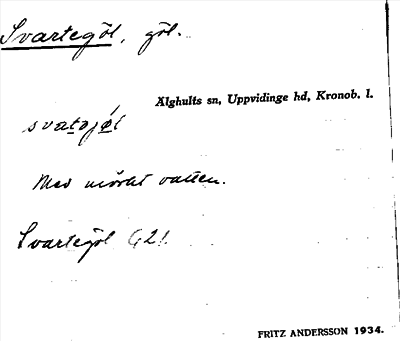 Svartegöl, göl.
Älghults sn, Uppvidinge hd, Kronob. l.
svatəjøl
Med mörkt vatten.
Svartegöl G21.
FRITZ ANDERSSON 1934.